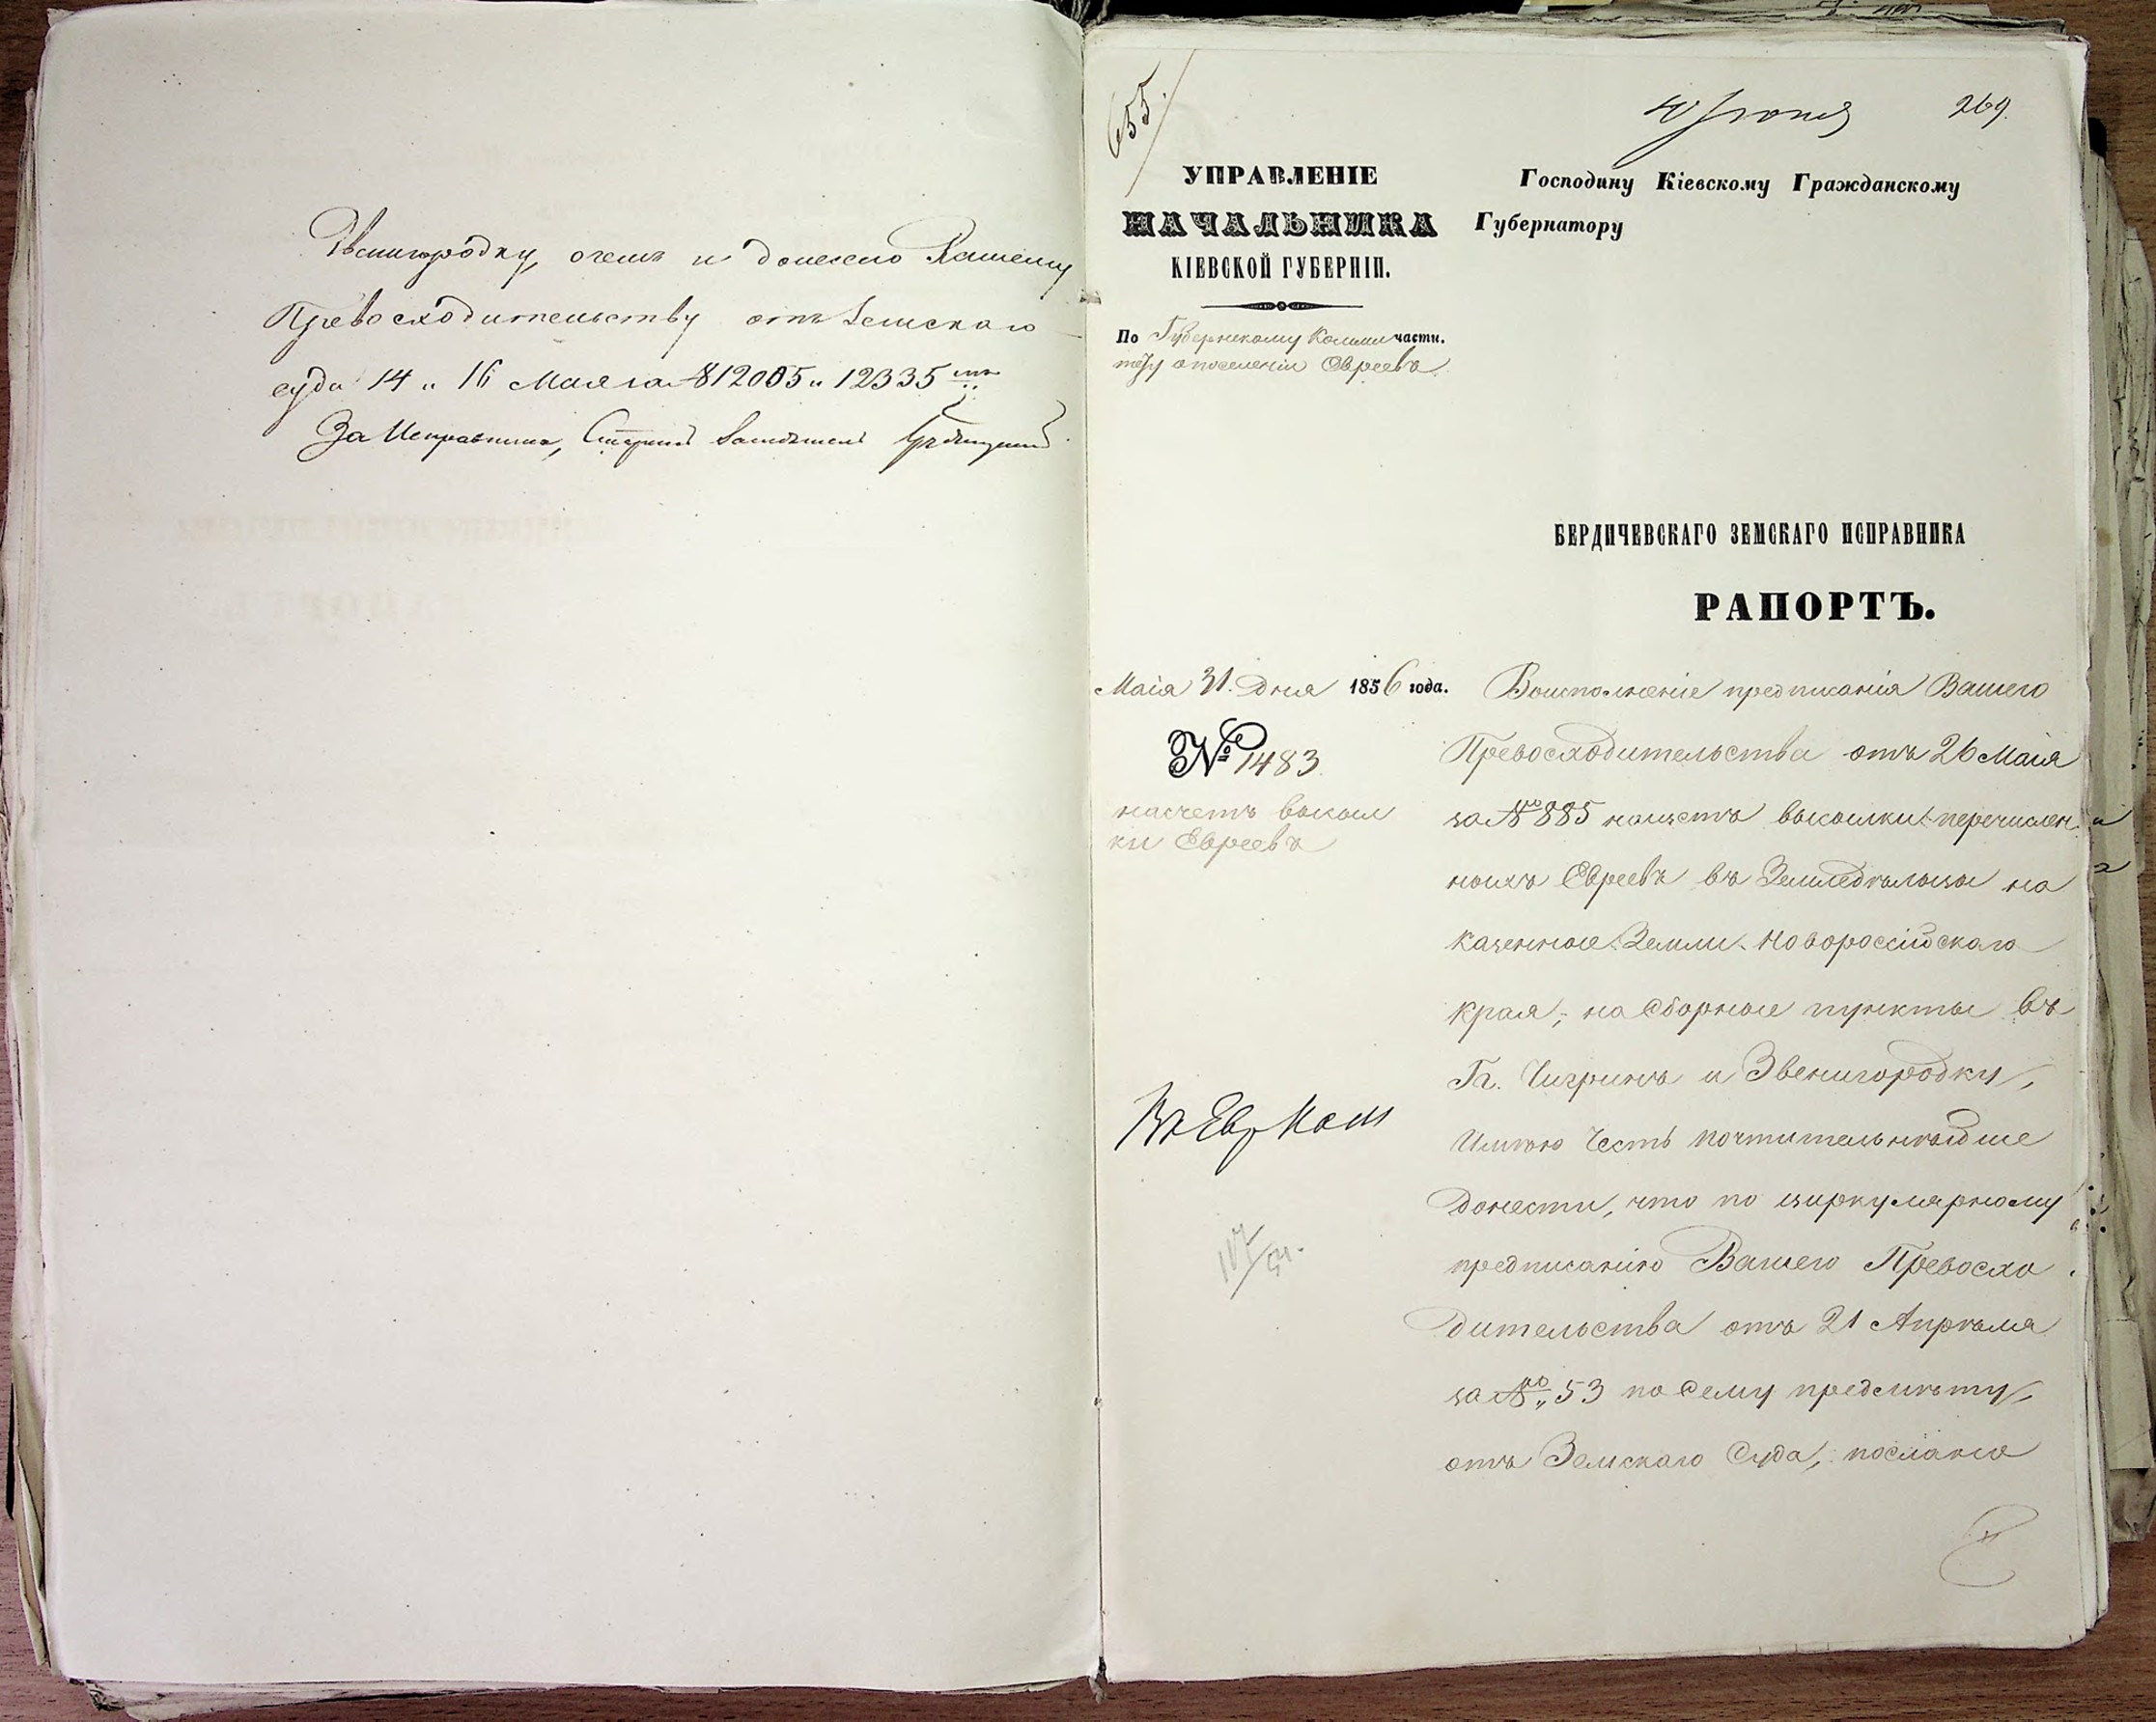 Звенигородку, о чемъ и донесено Вашему
Превосходительству отъ Земскаго
суда 14 и 16 Мая за № 12005 и 12335
За Исправника, Старшій Заседатель
655.
269.
УПРАВЛЕНІЕ
НАЧАЛЬНИКА
КІЕВСКОЙ ГУБЕРНІИ.
По Губернскому Комми части.
тету о поселеніи Евреевъ
Маія 31. Дня 1856 года.
№ 1483
насчетъ высыл
ки Евреевъ
Въ Евр Ком
Іюня
Господину Кіевскому Гражданскому
Губернатору
БЕРДИЧЕВСКАГО ЗЕМСКАГО ИСПРАВНИКА
РАПОРТЪ.
Воисполненіе предписанія Вашего
Превосходительства отъ 26 Маія
за № 885 насчетъ высылки перечислен
ныхъ Евреевъ въ Земледѣльцы на
казенные Земли Новороссійскаго
края, на сборные пункты въ
Гг. Чигринъ и Звенигородку,
Имѣю Честь почтительнѣйше
донести, что по циркулярному
предписанію Вашего Превосхо
дительства отъ 21 Апрѣля
за № 53 по сему предмѣту,
отъ Земскаго Суда, посланы